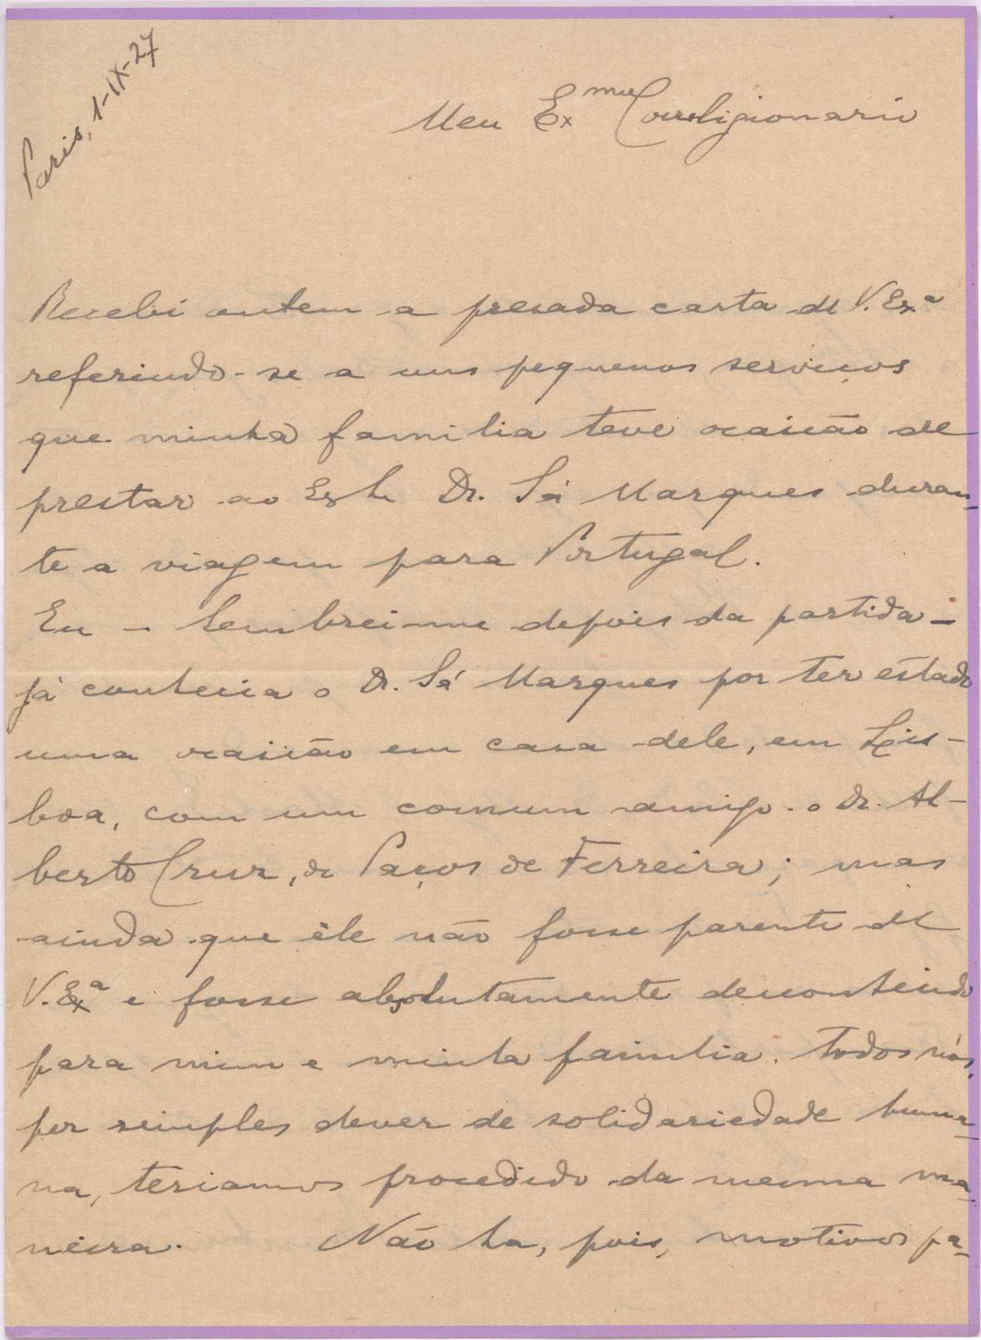 Paris, 1-IX-27
Meu Exmo Correligionario
Recebi ontem a presada carta de V. Exª
referindo-se a uns pequenos serviços
que minha familia teve ocasião de
prestar ao Dr. Sá Marques duran-
te a viagem para Portugal.
Eu - lembrei-me depois da partida -
já conhecia o Dr. Sá Marques por ter estado
uma ocasião em casa dele, em Lis-
boa, com um comum amigo o Dr. Al-
berto Cruz, de Paços de Ferreira; mas
ainda que êle não fosse parente de
V. Exª e fosse absolutamente desconhecido
para mim e minha familia, todos nós,
por simples dever de solidariedade huma-
na, teriamos procedido da mesma ma-
neira. Não ha, pois, motivos pa-